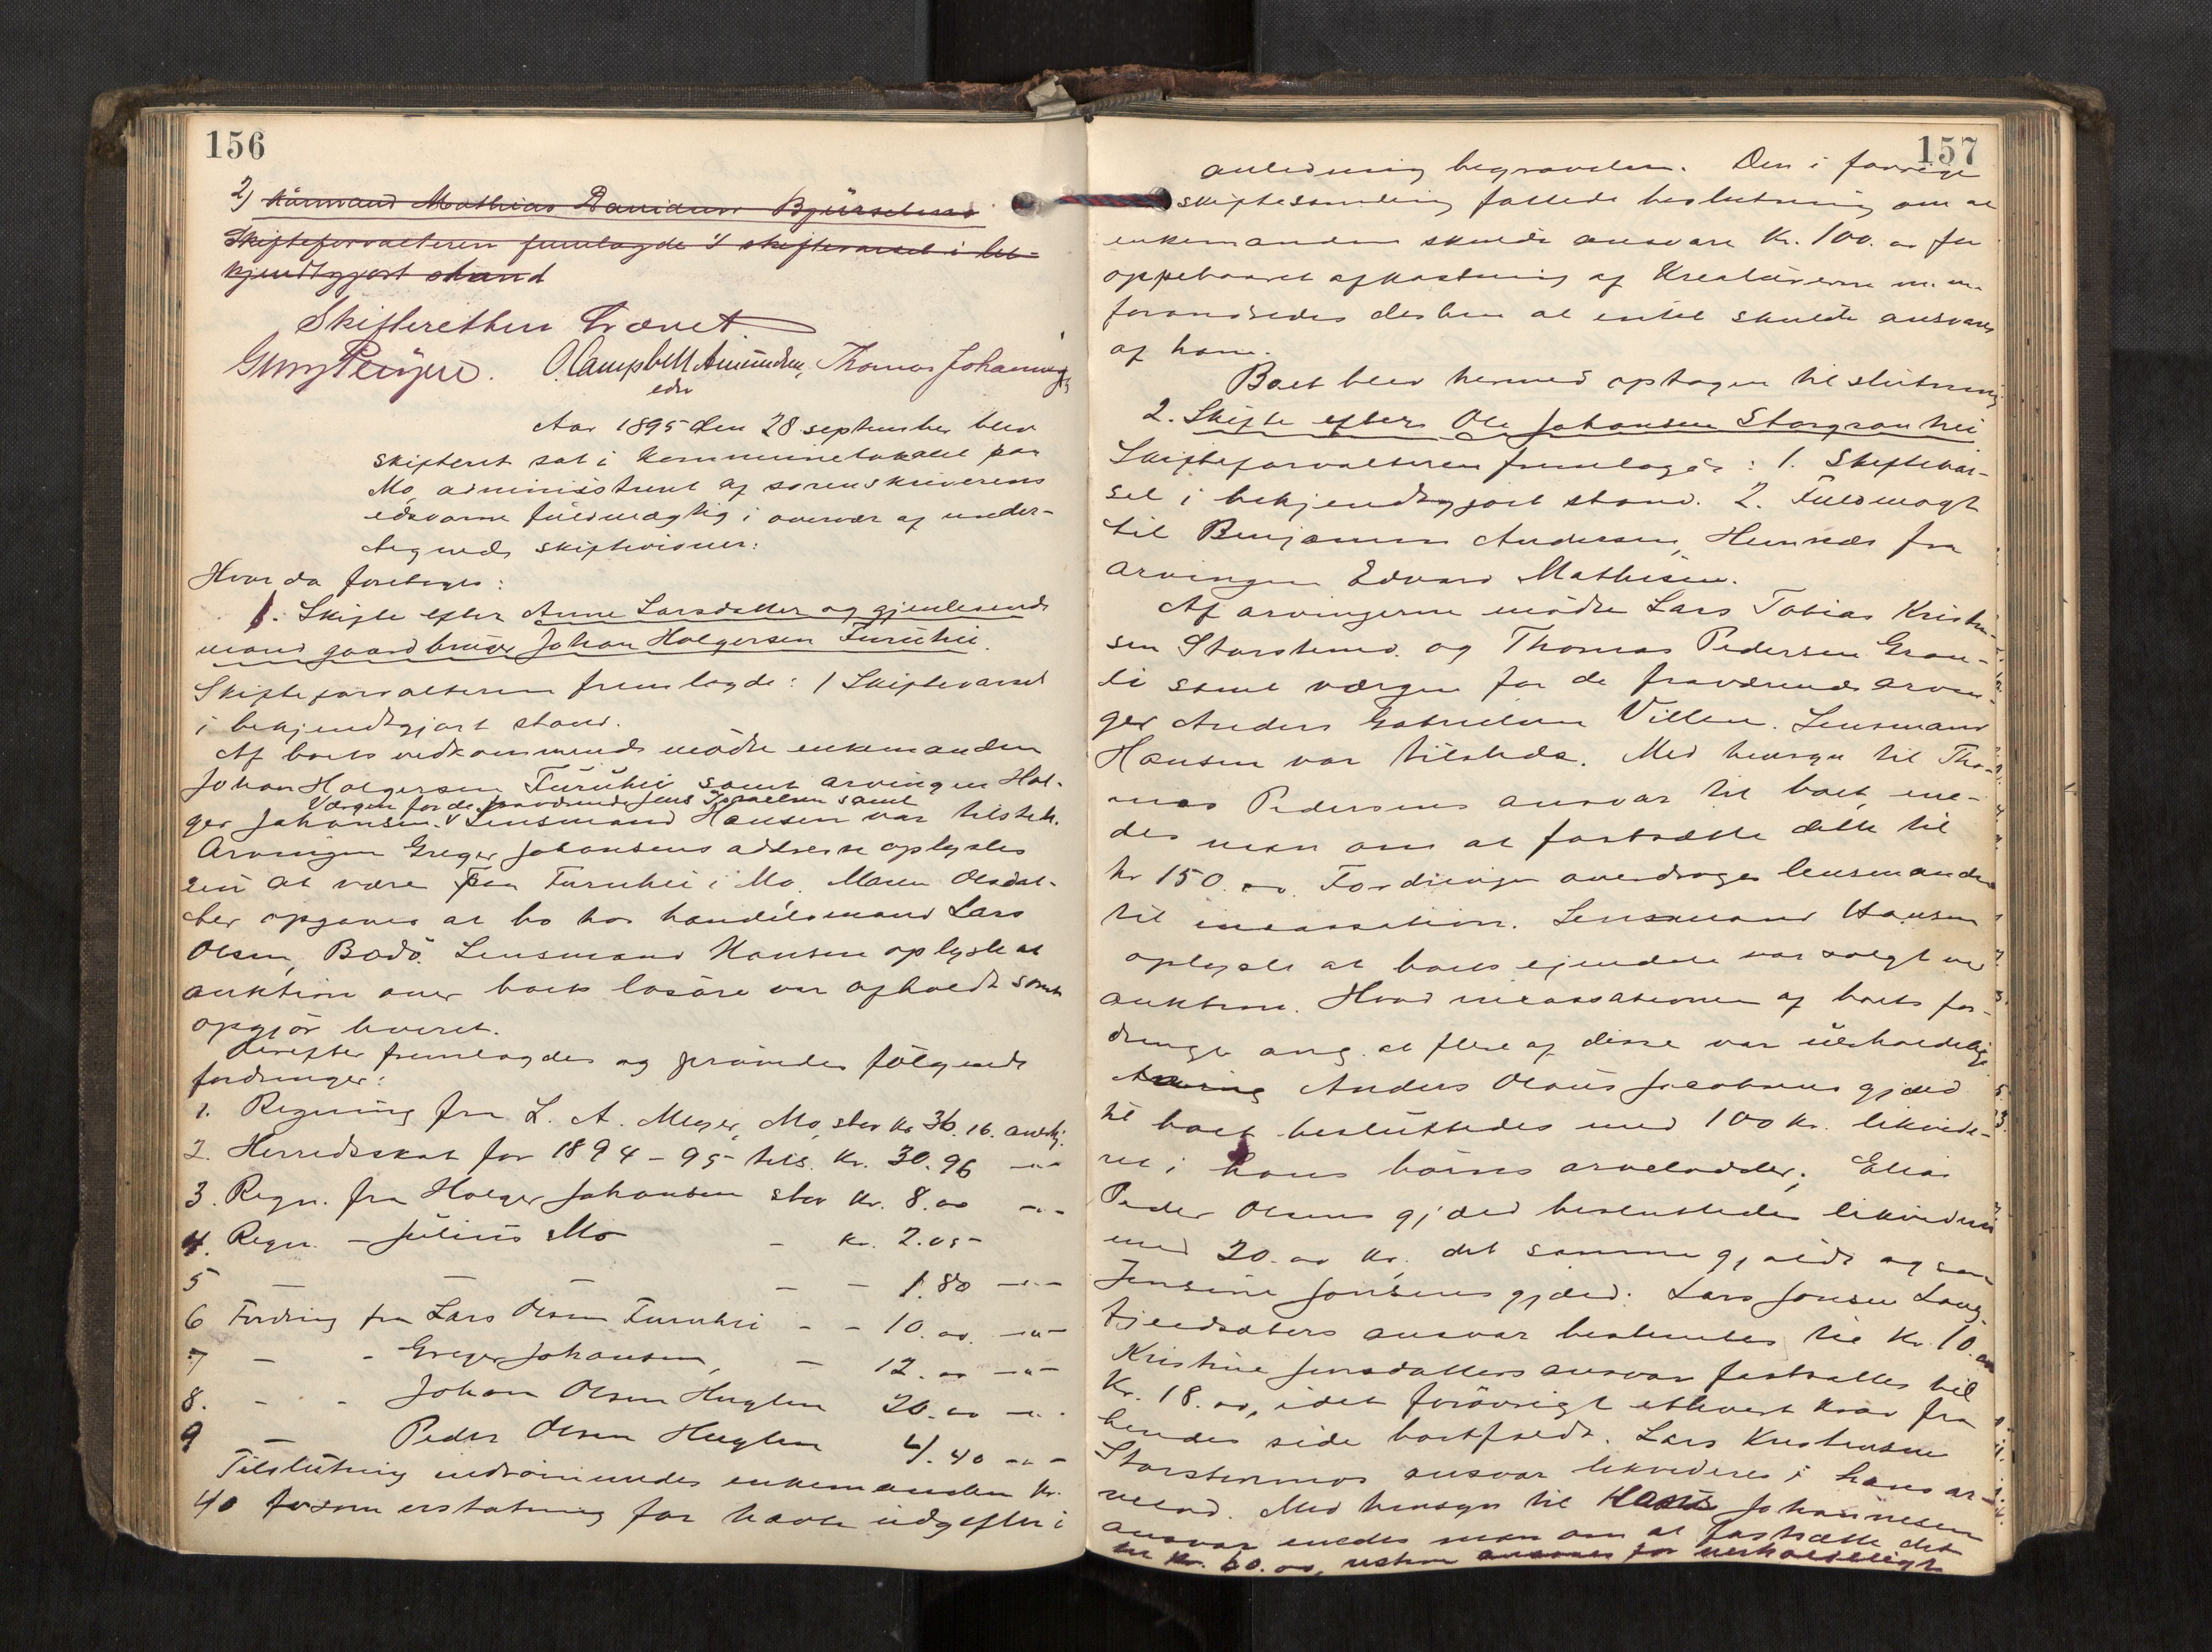 156
2) Kårmand Mathias Danielsen Bjurselmo
Skifteforvalteren fremlagde 1/ skiftevarsel i be-
kjendtgjort stand
Skifteretten hævet
O. Campbell Amundsen, Thomas Johannes
eds
Aar 1895 den 28 september blev
skifteret sat i kommunelokalet paa
Mo, administreret af sorenskriverens
edsvorne fuldmægtig i overvær af under-
tegnede skiftevidner:
Hvor da foretoges:
1. Skifte efter Anne Larsdatter og gjenlevende
mand gaardbruger Johan Holgersen Furuhei.
Skifteforvalteren fremlagde: 1 Skiftevarsel
i bekjendtgjort stand.
Af boets vedkommende mødte enkemanden
Johan Holgersen Furuhei samt arvingen Hol-
Værgen for de fraværende Jens Israelsen samt
ger Johansen. V Lensmand Hansen var tilstede.
Arvingen Greger Johansens addresse oplystes
nu at være paa Furuhei i Mo. Maren Olsdat-
ter opgaves at bo hos handelsmand Lars
Olsen, Bodö. Lensmand Hansen oplyste at
auktion over boets løsøre var afholdt samt
opgjör leveret.
Derefter fremlagdes og prövedes fölgende
fordringer:
1. Regning fra L. A. Meyer, Mo, stor kr 36.16. anerkj.
2. Herredsskat for 1894-95 tils. kr. 30.96 -"-
3. Regn. fra Holger Johansen stor kr. 8.00 -"-
4. Regn. - Julius Mo - kr. 2.05-
5 - - - - - 1.80 -"-
6 Fordring fra Lars Olsen Furuhei - - 10.00 -"-
7 - - Greger Johansen, - 12.00 -"-
8. - - Johan Olsen Huglen 20.00 -"-
9 - Peder Olsen Huglen 4.40 -"-
Tilslutning indrömmedes enkemanden kr.
40 som erstatning for havte udgifter i
157
anledning begravelsen. Den i forrige
skiftesamling fattede beslutning om at
enkemanden skulde ansvare Kr. 100.00 for
oppebaaret afkastning af Kreaturerne m.m.
forandredes derhen at intet skulde ansvares
af ham.
Boet blev hermed optagen til slutning
2. Skifte efter Ole Johansen Storgranhei
Skifteforvalteren fremlagde: 1. Skiftevar-
sel i bekjendtgjort stand. 2. Fuldmagt
til Benjamin Andersen, Hemnæs fra
arvingen Edvard Mathisen.
Af arvingerne mödte Lars Tobias Kristen-
sen Storstenmo og Thomas Pedersen Gran-
li samt værgen for de fraværende arvin-
ger Anders Gabrielsen Villen. Lensmand
Hansen var tilstede. Med hensyn til Tho-
mas Pedersens ansvar til boet ene-
des man om at fastsætte dette til
kr 150.00. Fordringen overdroges lensmanden
til incassation. Lensmand Hansen
oplyste at boets eiendele var solgt ved
auktion. Hvad incassationen af boets for-
dringe ang. at flere af disse var uerholdelige
Anders Olaus Jacobsens gjæld
til boet besluttedes med 100 kr. likvide-
ret i hans börns arvelodder; Elias
Peder Olsens gjæld besluttedes likvideret
med 20.00 kr. det samme gjaldt ogsaa
Jensine Jonsens gjæld: Lars Jonsen Lang-
fjeldsæters ansvar bestemtes til Kr. 10.00
Kristine Jensdatters ansvar fastsattes til
Kr. 18.00, idet forövrigt ethvert krav fra
hendes side bortfaldt. Lars Kristensen
Storstenmos ansvar likvideres i hans ar-
velod. Med hensyn til Johannesen
ansvar enedes man om at fastsætte det
til kr. 60.00, resten ansaaes for uerholdeligt